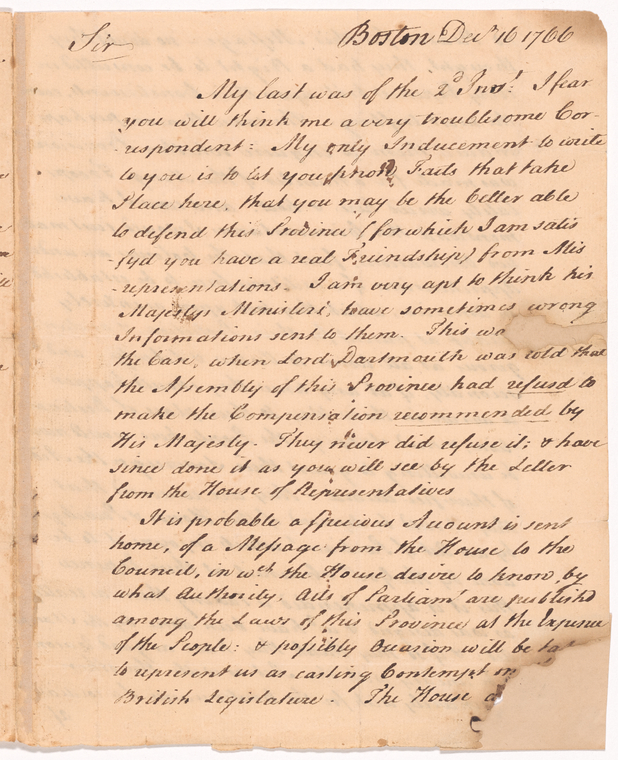 Sir
Boston Decr 16 1766
My last was of the 2d Inst. I fear
you will think me a very troublesome Cor-
-respondent: My only Inducement to write
to you is to let you know Facts that take
Place here, that you may be the better able
to defend this Province (for which I am satis
-fyd you have a real Friendship) from Mis
-representations. I am very apt to think his
Majestys Ministers, have sometimes wrong
Informations sent to them. This
the Case, when Lord Dartmouth was told that
the Assembly of this Province had refusd to
make the Compensation recommended by
His Majesty. They never did refuse it; & have
since done it as you will see by the Letter
from the House of Representatives
It is probable a specious Account is sent
home, of a Message from the House to the
Council, in wch the House desire to know by
what Authority, Acts of Parliamt are publishd
among the Laws of this Province at the Expence
of the People: & possibly Occasion will be
to represent us as casting Contempt
British Legislature. The House